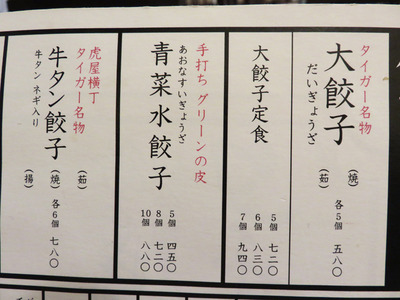 タイガー名物
大餃子
だいぎょうざ
(焼)
(茹)
各5個 五八〇
大餃子定食
5個 七二〇
6個 八三〇
7個 九四〇
手打ち グリーンの皮
あおなすいぎょうざ
青菜水餃子
5個 四五〇
8個 七二〇
10個 八八〇
虎屋横丁
タイガー名物
牛タン餃子
牛タン ネギ入り
(茹)
(焼)
(揚)
各6個 七八〇